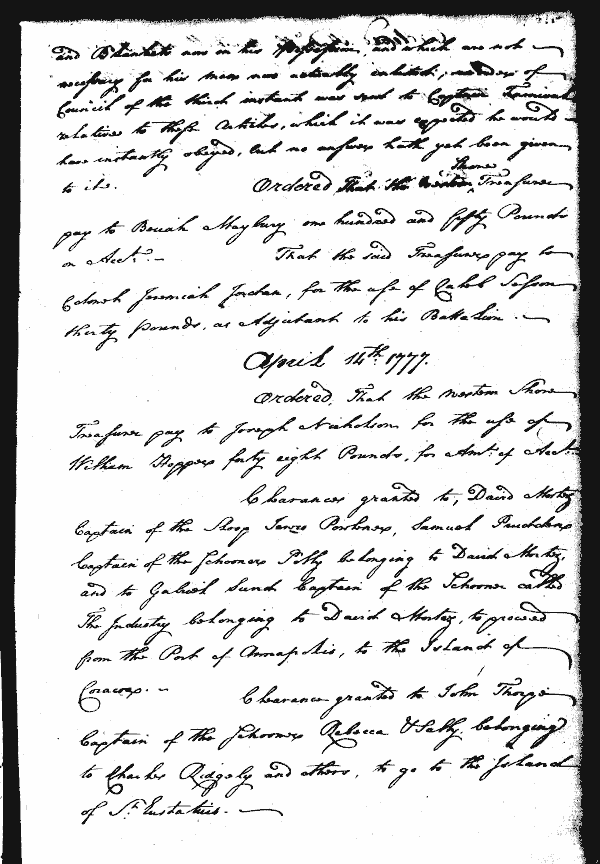 and Blankets now in his Possession, and which are not
necessary for his men now actually inlisted; an order of
Council of the third instant was sent to Captain
relative to these Articles, which it was expected he would
have instantly obeyed, but no answer hath yet been given
to it.
Shore
Ordered That the Western Treasurer
pay to Beriah Maybury one hundred and fifty Pounds
on Acct.
That the said Treasurer pay to
Colonel Jeremiah Jordan, for the use of Caleb
thirty pounds, as Adjutant to his Battalion.
April 14th 1777.
Ordered, That the western Shore
Treasurer pay to Joseph Nicholson for the use of
William Hoppers forty eight Pounds, for Amt. of Acct.
Clearances granted to, David
Captain of the Sloop, Samuel
Captain of the Schooner Polly belonging to David
and to Gabriel Captain of the Schooner called
The Industry belonging to David, to proceed
from the Port of Annapolis, to the Island of
Coracoa.
Clearance granted to John Thorpe
Captain of the Schooner Rebecca & Sally, belonging
to Charles Ridgely and others, to go to the Island
of St. Eustatius.